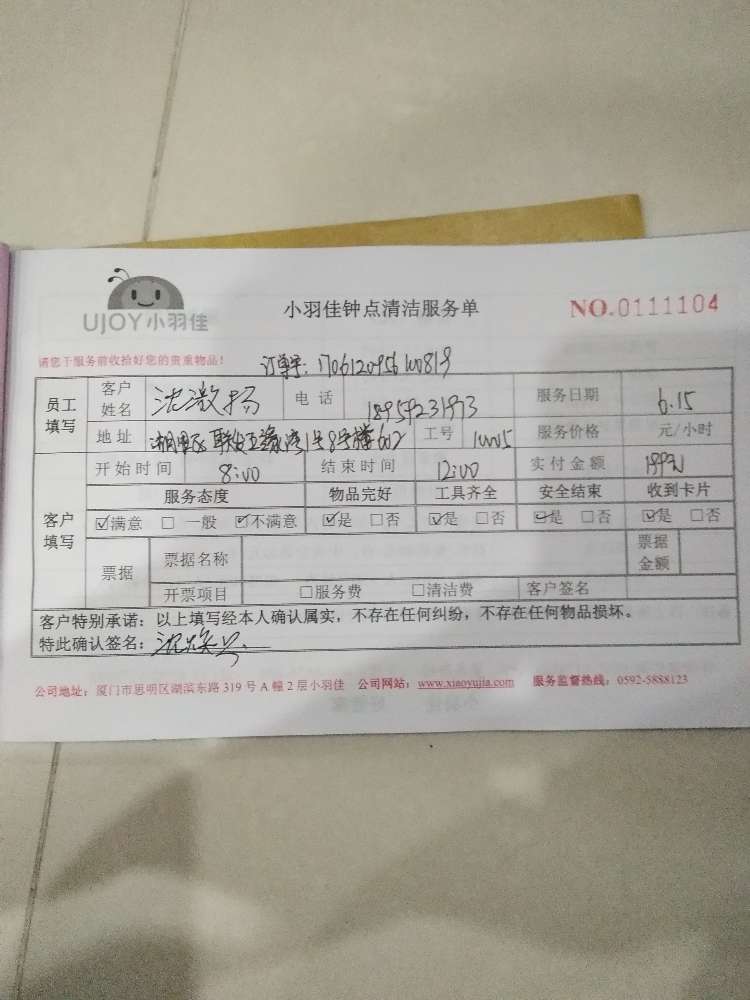 UJOY小羽佳
小羽佳钟点清洁服务单
NO.0111104
请您于服务前收拾好您的贵重物品!
订单号:
员工填写 客户姓名 沈激扬 电 话 服务日期 6.15
地址 工号 服务价格 元/小时
客户填写 开始时间 8:00 结束时间 12:00 实付金额
服务态度 物品完好 工具齐全 安全结束 收到卡片
☑满意 □ 一般 ☑不满意 ☑是 □否 ☑是 □否 ☑是 □否 ☑是 □否
票据 票据名称 票据金额
开票项目 □服务费 □清洁费 客户签名
客户特别承诺:以上填写经本人确认属实,不存在任何纠纷,不存在任何物品损坏。
特此确认签名:
公司地址:厦门市思明区湖滨东路 319 号 A 幢 2 层小羽佳 公司网站:www.xiaoyujia.com 服务监督热线:0592-5888123